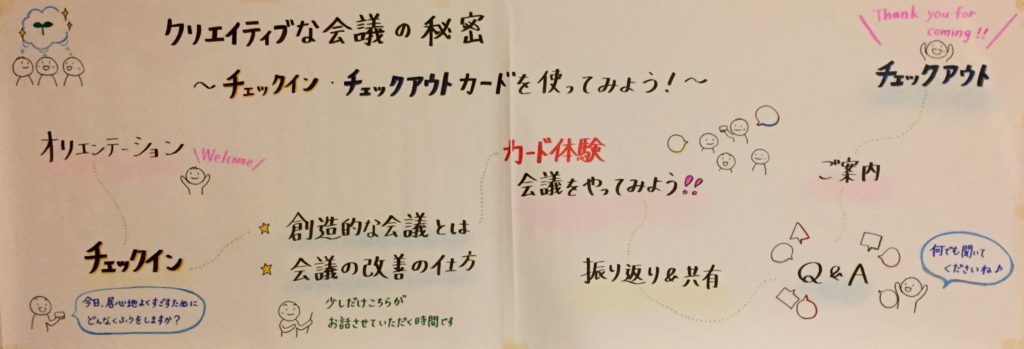 クリエイティブな会議の秘密
～チェックイン・チェックアウトカードを使ってみよう！～
オリエンテーション
\Welcome/
チェックイン
今日、居心地よくすごすために
どんなくふうをしますか？
☆ 創造的な会議とは
☆ 会議の改善の仕方
少しだけこちらが
お話させていただく時間です
カード体験
会議をやってみよう!!
振り返り&共有
Q&A
何でも聞いて
くださいね♪
ご案内
チェックアウト
Thank you for
coming!!